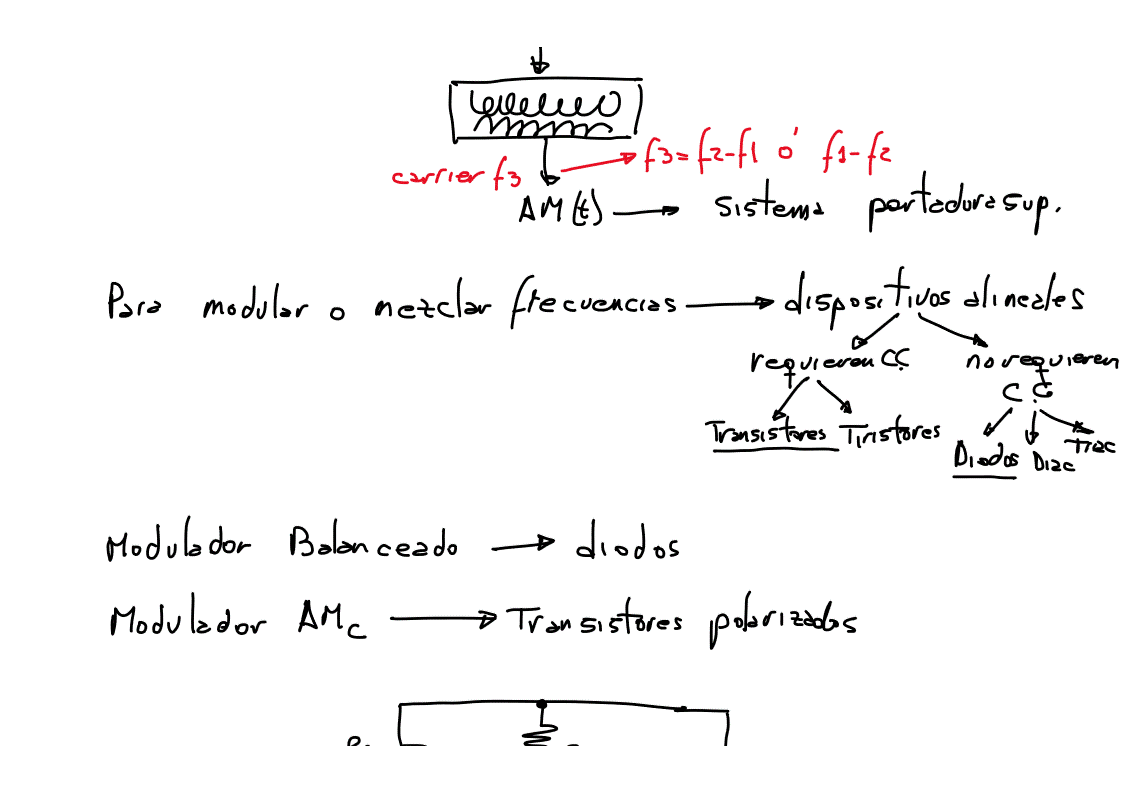 f3 = f2-f1 ó f1-f2
carrier f3
AM(t) → sistema portadura sup.
Para modular o mezclar frecuencias → dispositivos alineales
requieren CC no requieren
CC
Transistores Tiristores Diodos Diac Triac
Modulador Balanceado → diodos
Modulador AMc → Transistores polarizados